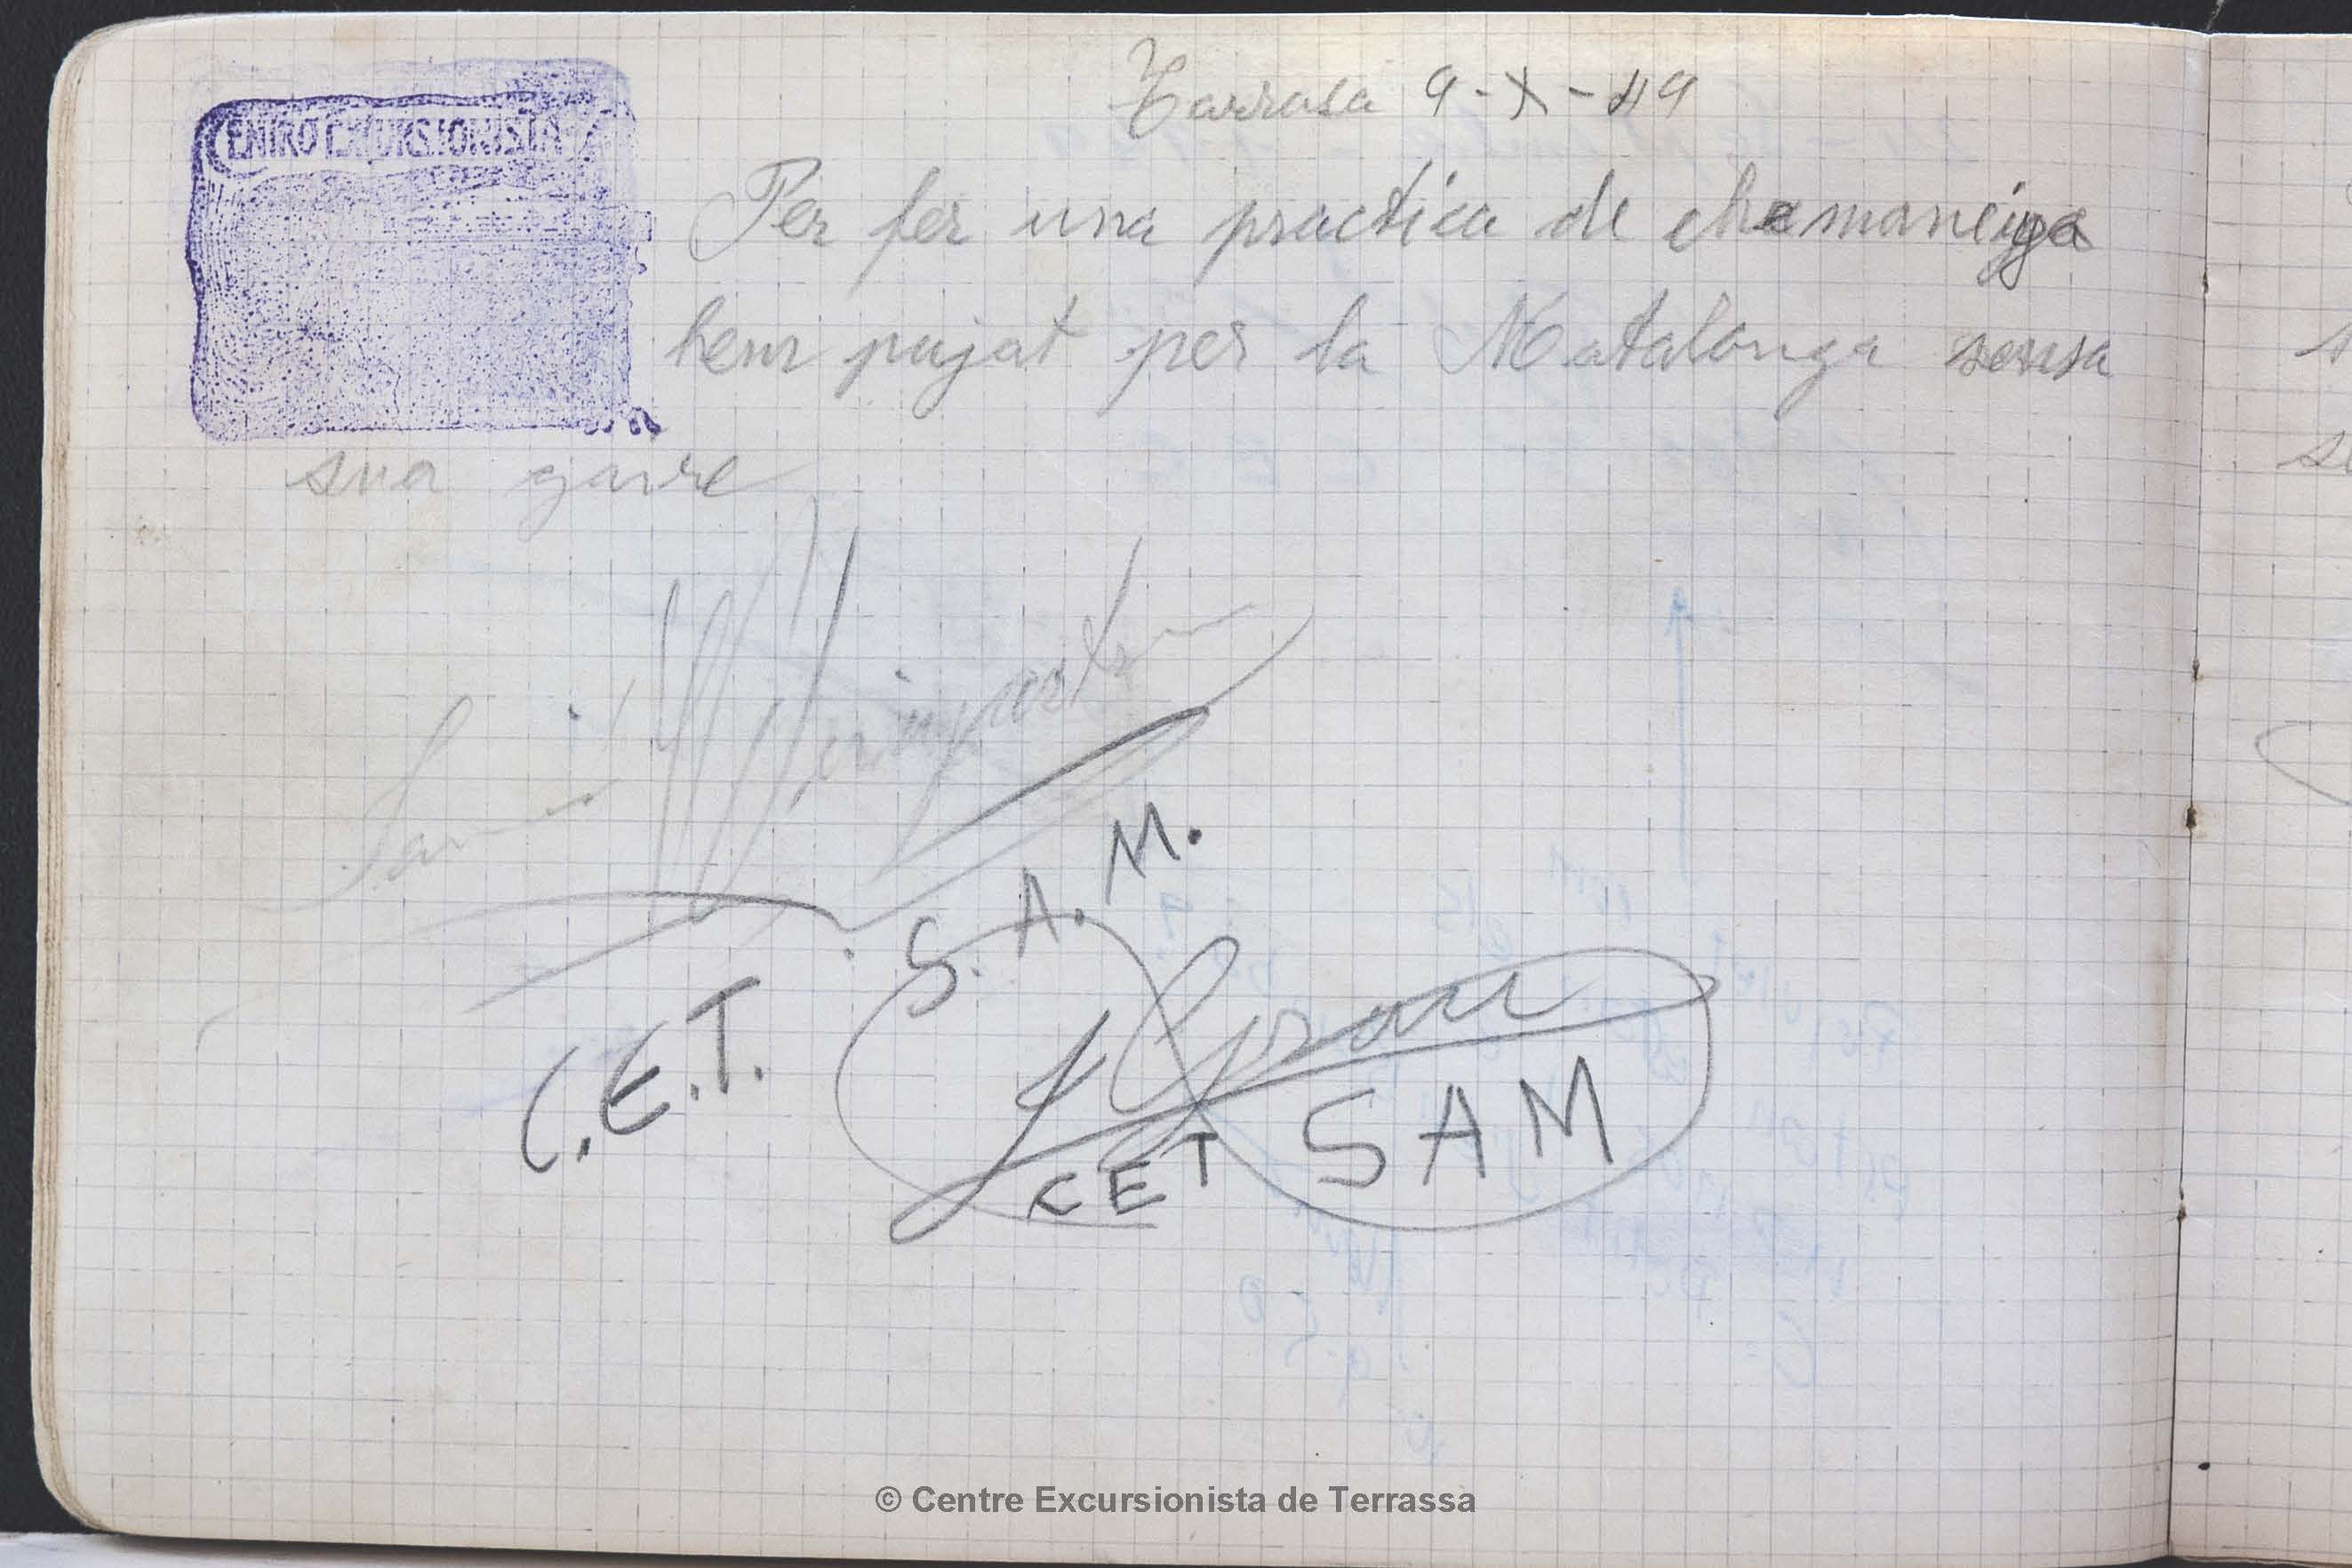 Tarrasa 9-X-49
ENTRO EXCURSIONISTA
Per fer una practica de
hem pujat per la Matalonga sensa
sua gaire
S. A. M.
C.E.T.
J Grau
CET SAM
© Centre Excursionista de Terrassa